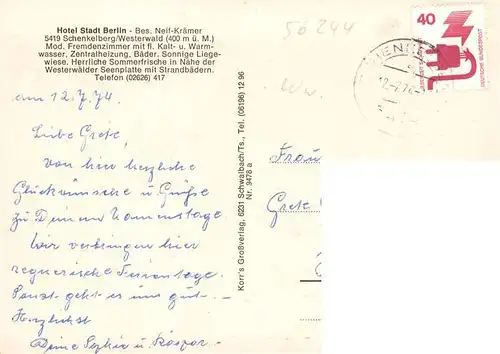 Hotel Stadt Berlin - Bes. Neif-Krämer
5419 Schenkelberg/Westerwald (400 m ü. M.)
Mod. Fremdenzimmer mit fl. Kalt- u. Warm-
wasser, Zentralheizung, Bäder. Sonnige Liege-
wiese. Herrliche Sommerfrische in Nähe der
Westerwälder Seenplatte mit Strandbädern.
Telefon (02626) 417
am 12.7.74
Liebe Grete,
von hier herzliche
Glückwünsche u. Grüße
zu Deinem Namenstage.
Wir verbringen hier
regnerische Ferientage.
Sonst geht es uns gut. -
Herzlichst
Deine Sophia u. Kaspar.
Korr's Großverlag, 6231 Schwalbach/Ts., Tel. (06196) 12 96
Nr. 9478 a
56244
Ww.
40
DEUTSCHE BUNDESPOST
Frau
Grete